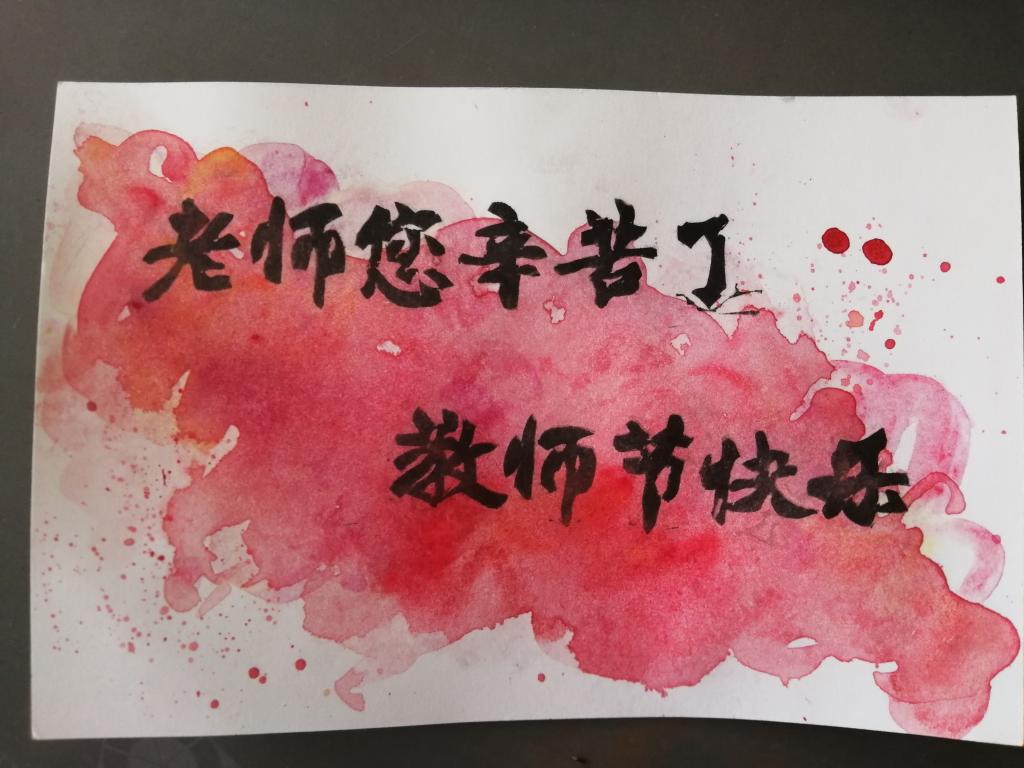 老师您辛苦了
教师节快乐